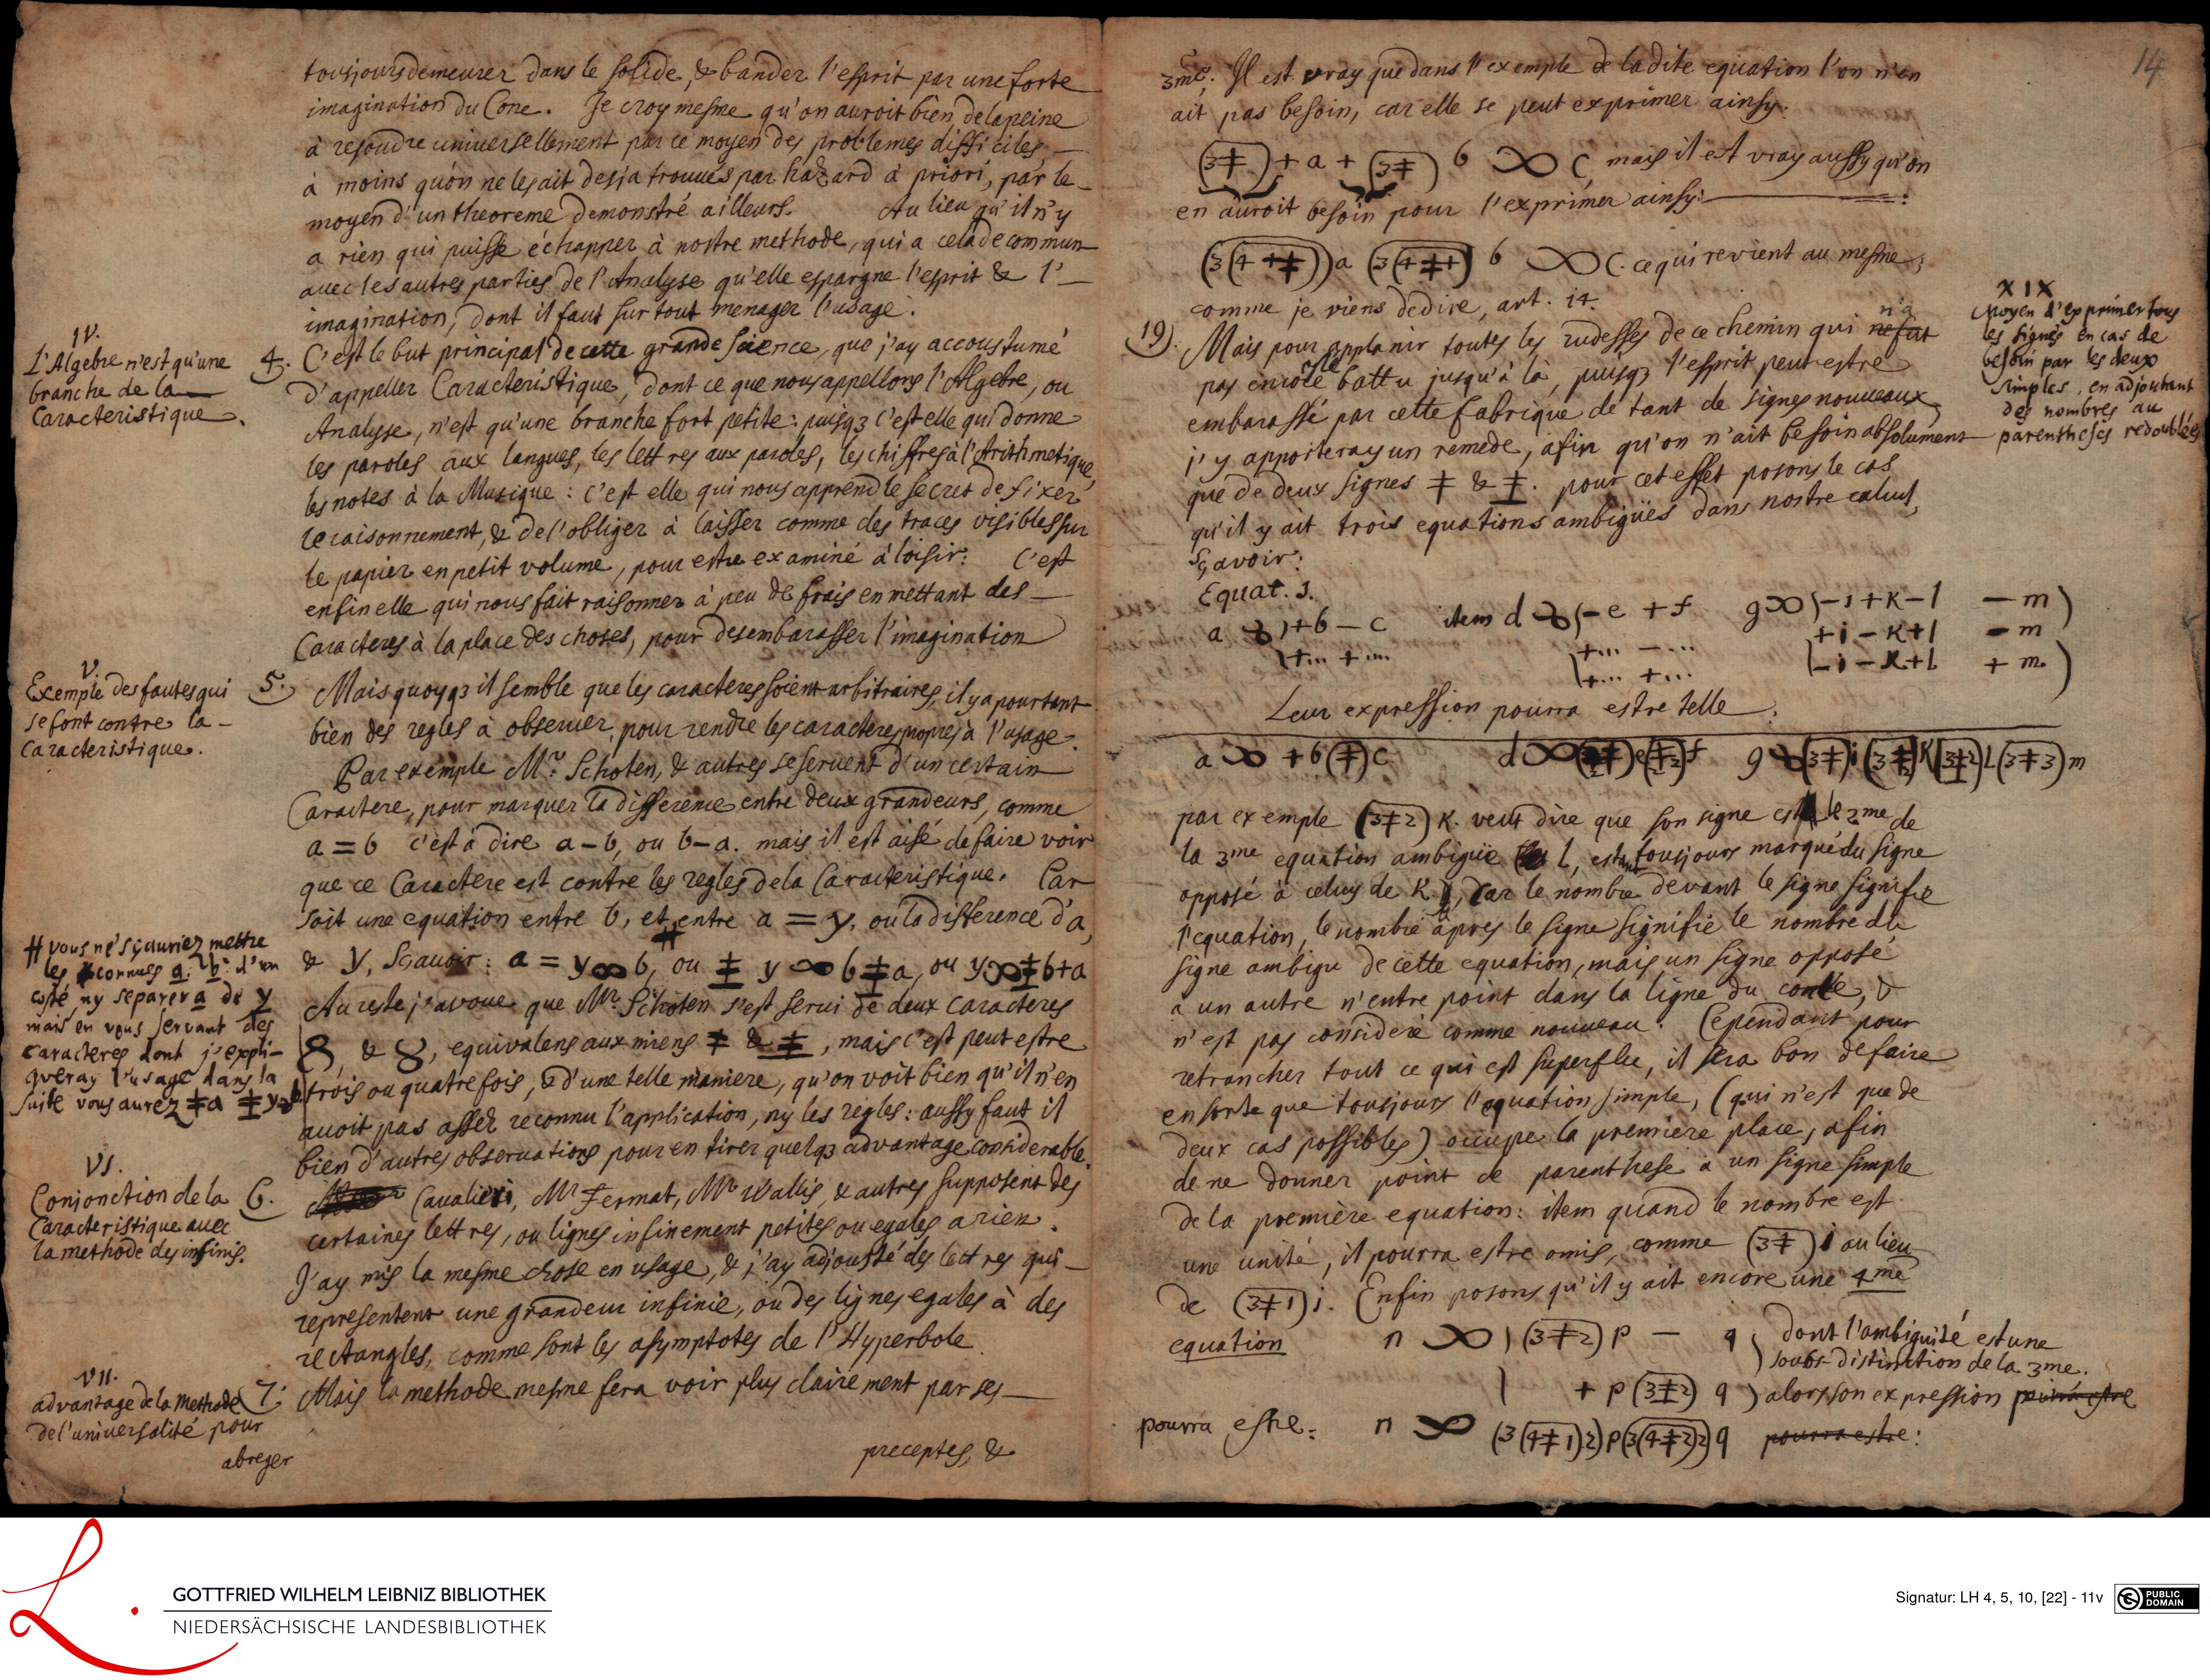 tousjours demeurer dans le solide, & bander l'esprit par une forte
imagination du Cone. Je croy mesme qu'on auroit bien de la peine
à resoudre universellement par ce moyen des problemes difficiles
à moins qu'on ne les ait desja trouués par hazard à priori, par le
moyen d'un theoreme demonstré ailleurs. Au lieu qu'il n'y
a rien qui puisse échapper à nostre methode, qui a cela de commun
auec les autres parties de l'Analyse qu'elle espargne l'esprit & l'
imagination, dont il faut sur tout menager l'usage.
IV.
L'Algebre n'est qu'une
branche de la
Caracteristique.
4. C'est le but principal de cette grande science, que j'ay accoustumé
d'appeller Caracteristique, dont ce que nous appellons l'Algebre, ou
Analyse, n'est qu'une branche fort petite: puisq3 c'est elle qui donne
les paroles aux langues, les lettres aux paroles, les chiffres à l'Arithmetique,
les notes à la Musique: c'est elle qui nous apprend le secret de fixer
le raisonnement, & de l'obliger à laisser comme des traces visibles sur
le papier en petit volume, pour estre examiné à loisir: C'est
enfin elle qui nous fait raisonner à peu de frais en mettant des
Caracteres à la place des choses, pour desembarasser l'imagination
V.
Exemple des fautes qui
se font contre la
Caracteristique.
5. Mais quoyq3 il semble que les caracteres soient arbitraires, il y a pourtant
bien des regles à obseruer, pour rendre les caracteres propres à l'usage.
Par exemple Mr. Schoten, & autres se seruent d'un certain
Caractere, pour marquer la difference entre deux grandeurs, comme
a = b c'est à dire a – b, ou b – a. mais il est aisé de faire voir
que ce Caractere est contre les regles de la Caracteristique. Car
soit une equation entre b, et entre a = y, ou la difference d'a,
& y, sçauoir: a = y ∞ b, ou ‡ y ∞ b ‡ a, ou y ∞ ‡ b + a
# vous ne sçauriez mettre
les connues a. b. d'un
costé ny separer a de y
mais en vous servant des
caracteres dont j'expli-
queray l'usage dans la
suite vous aurez ‡a ‡ y ∞ b
Au reste j'avoue que Mr. Schoten s'est serui de deux caracteres
8, & 8, equivalens aux miens ‡ & ‡, mais c'est peut estre
trois ou quatre fois, & d'une telle maniere, qu'on voit bien qu'il n'en
auoit pas assez reconnu l'application, ny les regles: aussy faut il
bien d'autres obseruations pour en tirer quelq3 advantage considerable.
VI.
Conjonction de la
Caracteristique auec
la methode des infinis.
6. Caualieri, Mr Fermat, Mr Wallis, & autres supposent des
certaines lettres, ou lignes infinement petites ou egales a rien.
J'ay mis la mesme chose en usage, & j'ay adjousté des lettres qui
representent une grandeur infinie, ou des lignes egales à des
rectangles, comme sont les asymptotes de l'Hyperbole.
VII.
advantage de la Methode
de l'universalité pour
abreger
7. Mais la methode mesme fera voir plus clairement par ses
preceptes, &
14
3me. Il est vray que dans l'exemple de la dite equation l'on n'en
ait pas besoin, car elle se peut exprimer ainsy:
(3‡) + a + (3‡) b ∞ c, mais il est vray aussy qu'on
en auroit besoin pour l'exprimer ainsy:
(3(4 +‡)) a (3(4‡+)) b ∞ c. ce qui revient au mesme,
comme je viens de dire, art. 14.
XIX
Moyen d'exprimer tous
les signes en cas de
besoin par les deux
simples, en adjoutant
des nombres au
parentheses redoublées
19). Mais pour applanir toutes les rudesses de ce chemin qui n'a
pas encore esté battu jusqu'à là, puisq3 l'esprit peut estre
embarassé par cette fabrique de tant de signes nouveaux,
j'y apporteray un remede, afin qu'on n'ait besoin absolument
que de deux signes ‡ & ‡. pour cet effet posons le cas
qu'il y ait trois equations ambigües dans nostre calcul,
sçavoir:
Equat. 3.
a ∞ ) + b – c item d ∞ ( – e + f g ∞ ( – i + k – l – m )
+... +.... +... –.... + i – k + l – m
+... +... – i – k + l + m )
Leur expression pourra estre telle.
a ∞ + b (‡) c d ∞ (2‡) e (‡2) f g ∞ (3‡) i (3‡2) k (3‡2) l (3‡3) m
par exemple (3‡2) k. veut dire que son signe est le 2me de
la 3me equation ambigüe l, estant tousjours marqué du signe
opposé à celuy de k, car le nombre devant le signe signifie
l'equation, le nombre apres le signe signifie le nombre du
signe ambigu de cette equation, mais un signe opposé
à un autre n'entre point dans la ligne du conte, &
n'est pas consideré comme nouveau. Cependant pour
retrancher tout ce qui est superflu, il sera bon de faire
en sorte que tousjours l'equation simple, (qui n'est que de
deux cas possibles) occupe la premiere place, afin
de ne donner point de parenthese à un signe simple
de la premiere equation: item quand le nombre est
une unité, il pourra estre omis, comme (3‡) i au lieu
de (3‡1) i. Enfin posons qu'il y ait encore une 4me
equation n ∞ ) (3‡2) p – q ) dont l'ambiguité est une
soubs-distinction de la 3me.
) + p (3‡2) q ) alors son expression pourra estre
pourra estre: n ∞ (3(4‡1)2) p (3(4‡2)2) q pourra estre:
GOTTFRIED WILHELM LEIBNIZ BIBLIOTHEK
NIEDERSÄCHSISCHE LANDESBIBLIOTHEK
Signatur: LH 4, 5, 10, [22] - 11v
PUBLIC
DOMAIN